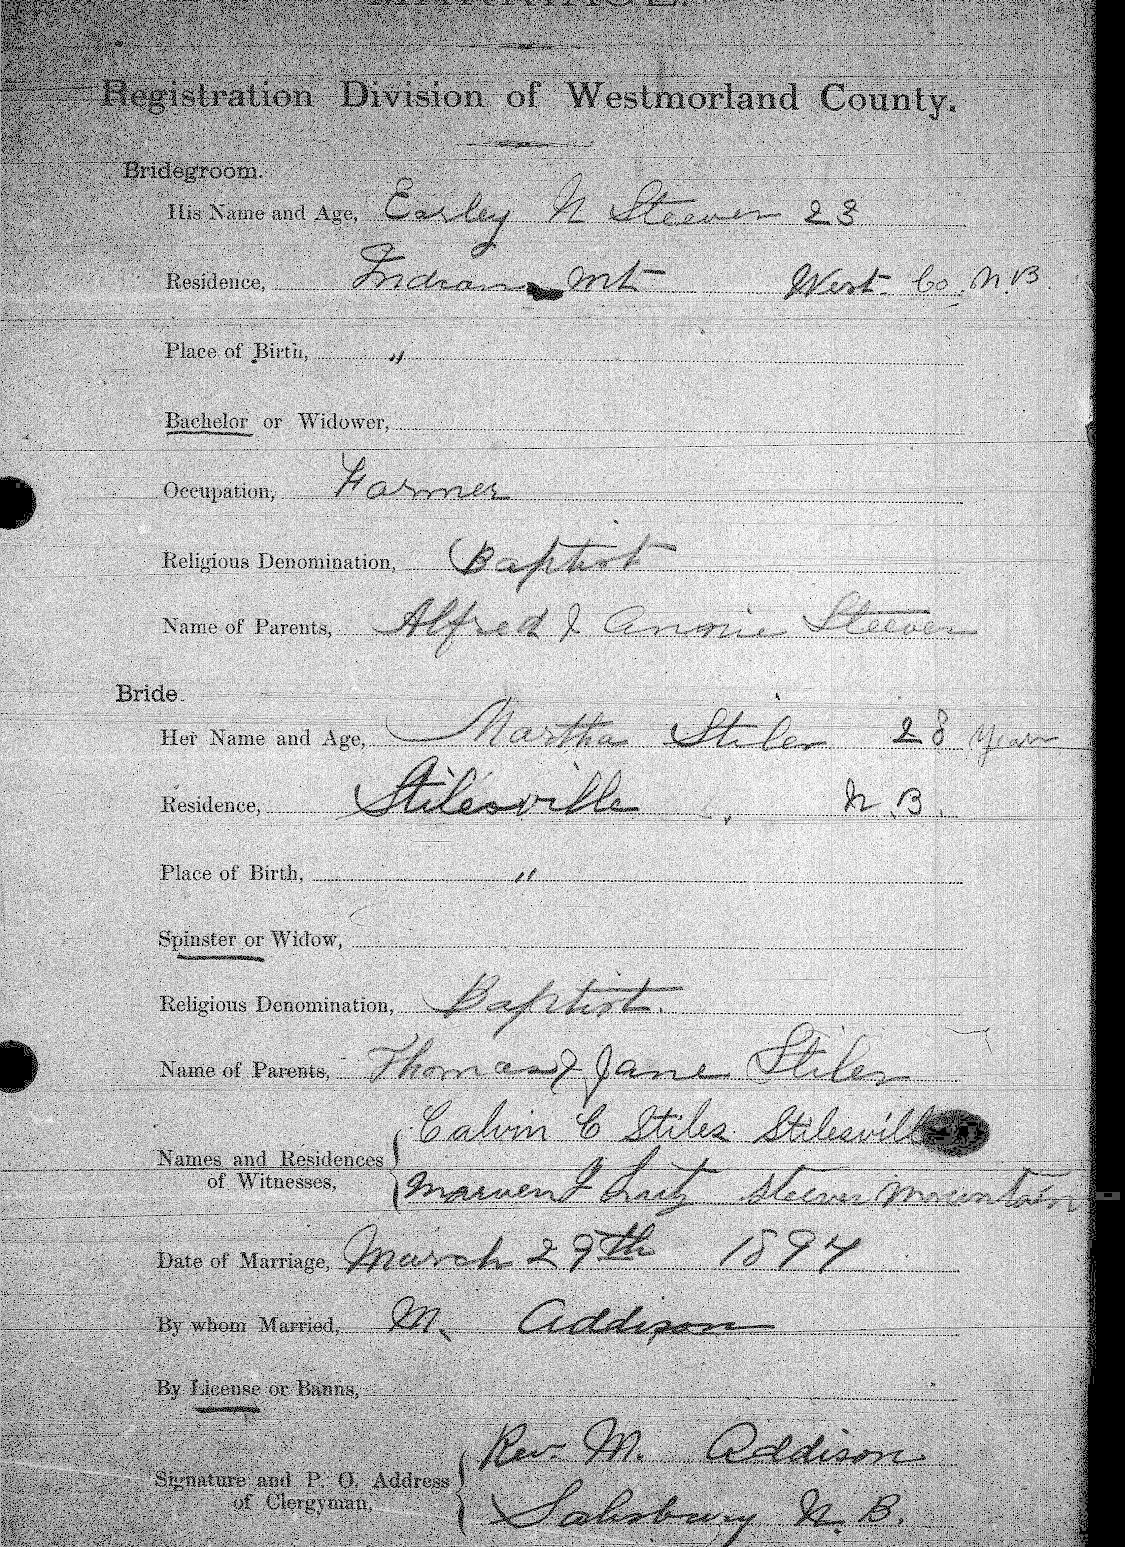 MARRIAGE.
Registration Division of Westmorland County.
Bridegroom.
His Name and Age, Earley N Steeves 23
Residence, Indian Mt West. Co. N.B
Place of Birth, "
Bachelor or Widower,
Occupation, Farmer
Religious Denomination, Baptist
Name of Parents, Alfred & Annie Steeves
Bride.
Her Name and Age, Martha Stiles 28 Years
Residence, Stilesville N.B.
Place of Birth, "
Spinster or Widow,
Religious Denomination, Baptist.
Name of Parents, Thomas & Jane Stiles
Calvin C Stiles Stilesville
Names and Residences
of Witnesses,
Marven F Lutz Steeves Mountain
Date of Marriage, March 29th 1894
By whom Married, M. Addison
By License or Banns,
Rev. M. Addison
Signature and P. O. Address
of Clergyman,
Salisbury N. B.